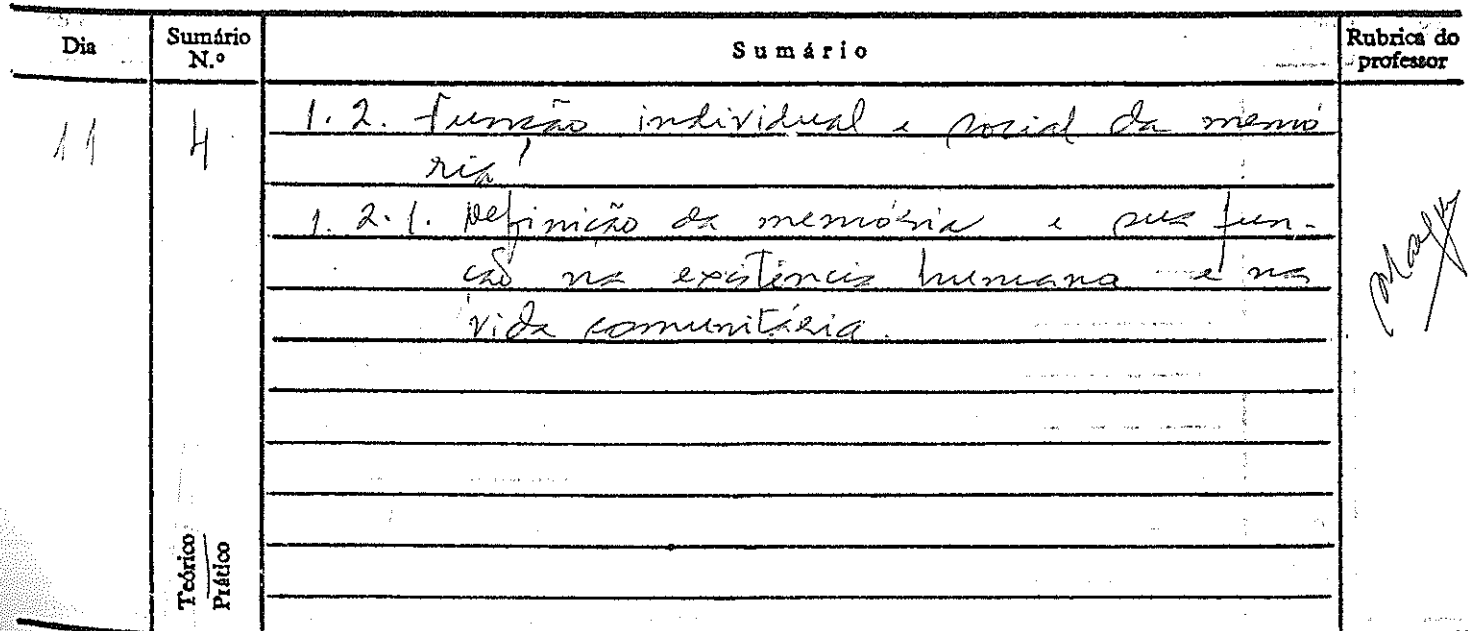 Dia Sumário N.º Sumário Rubrica do professor
11 4 1.2. Função individual e social da memó
ria
1.2.1. Definição da memória e sua fun-
ção na existência humana e na
vida comunitária.
Teórico
Prático